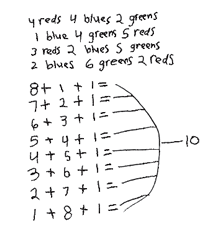 4 reds 4 blues 2 greens
1 blue 4 greens 5 reds
3 reds 2 blues 5 greens
2 blues 6 greens 2 reds
8+1+1=
7+2+1=
6+3+1=
5+4+1=
4+5+1=
3+6+1=
2+7+1=
1+8+1=
10